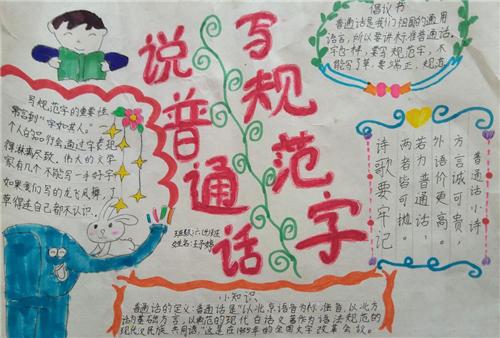 说普通话
写规范字
倡议书
普通话是我们祖国的通用
语言,所以要讲标准普通话。
写字时,要写规范字,不
能写了草,要端正,规范
写规范字的重要性
常言到“字如其人。”
个人的品行会通过字表现
得淋漓尽致,伟大的文学
家有几个不能写一手好字
如果我们写的龙飞凤舞,了
草得连自己都不认识。
班级:六(2)班
姓名:王予嫆
普通话小诗
方言诚可贵,
外语价更高。
若为普通话,
两者皆可抛。
诗歌要牢记
小知识
普通话的定义:普通话是“以北京语音为标准音,以北方
话为基础方言,以典范的现代白话文著作为语法规范的
现代汉民族共同语,”这是在1955年的全国文字改革会议。